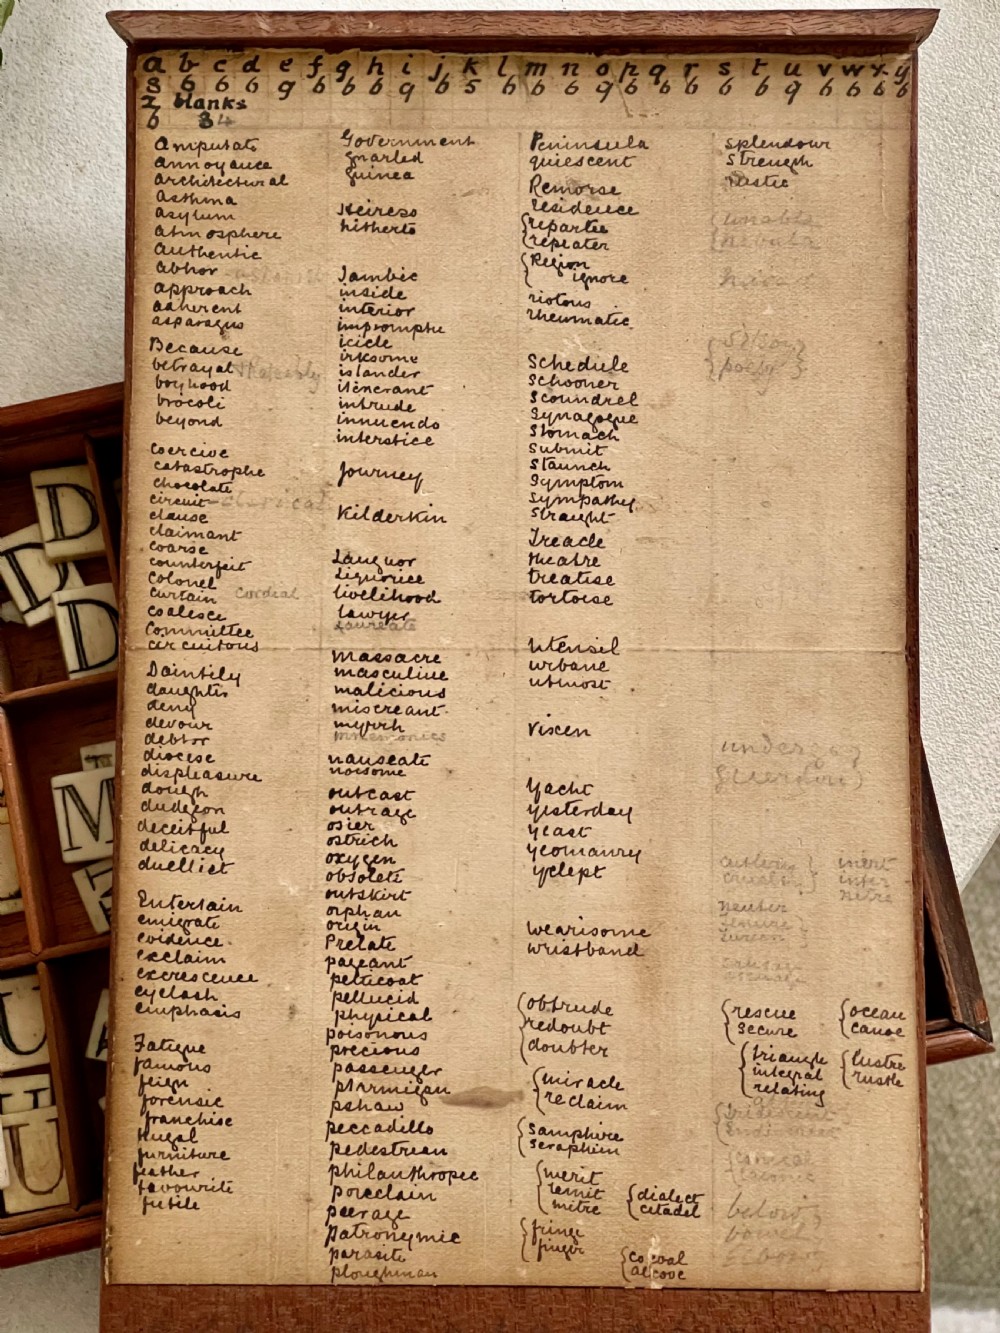 a b c d e f g h i j k l m n o p q r s t u v w x y
8 6 6 6 9 6 6 6 9 6 5 6 6 6 9 6 6 6 6 6 9 6 6 6 6
z blanks
6 34
Amputate
annoyance
architectural
asthma
asylum
atmosphere
authentic
abhor
approach
adherent
asparagus
Because
betrayal
boyhood
brocoli
beyond
Coercive
catastrophe
chocolate
circuit - clerical
clause
claimant
coarse
counterfeit
colonel
curtain cordial
coalesce
committee
circuitous
Daintily
daughter
deny
devour
debtor
diocese
displeasure
dough
dudgeon
deceitful
delicacy
duellist
Entertain
emigrate
evidence
exclaim
excrescence
eyelash
emphasis
Fatigue
famous
feign
forensic
franchise
frugal
furniture
feather
favourite
futile
Government
gnarled
guinea
Heiress
hitherto
Iambic
inside
interior
impromptu
icicle
irksome
islander
itinerant
intrude
innuendo
interstice
Journey
Kilderkin
Languor
liquorice
livelihood
lawyer
laureate
Massacre
masculine
malicious
miscreant
myrrh
mnemonics
nauseate
noisome
outcast
outrage
osier
ostrich
oxygen
obsolete
outskirt
orphan
origin
Prelate
pageant
petticoat
pellucid
physical
poisonous
precious
passenger
ptarmigan
pshaw
peccadillo
pedestrian
philanthropee
porcelain
peerage
patronymic
parasite
ploughman
Peninsula
quiescent
Remorse
residence
{repartee
{repeater
{Region
{ignore
riotous
rheumatic
Schedule
schooner
scoundrel
Synagogue
Stomach
submit
staunch
symptom
sympathy
straught
Treacle
theatre
treatise
tortoise
Utensil
urbane
utmost
Vixen
Yacht
yesterday
yeast
yeomanry
yclept
wearisome
wristband
{obtrude
{redoubt
{doubter
{miracle
{reclaim
{samphire
{seraphim
{merit
{remit
{mitre
{dialect
{citadel
{fringe
{finger
{coeval
{alcove
splendour
strength
rustic
{unable
{nebula
undergo
neuter
{rescue
{secure
{ocean
{canoe
{triangle
{integral
{relating
{lustre
{rustle
{conical
inert
inter
nitre
below